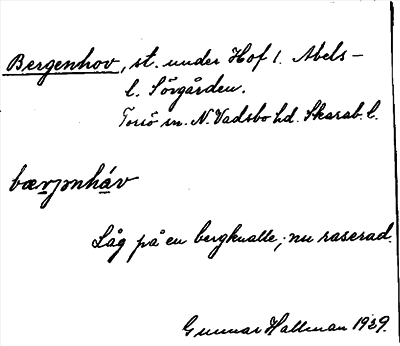 Bergenhov, st. under Hof l. Abels-
l. Sörgården.
Torsö sn. N. Vadsbo hd. Skarab. l.
bærjənháv
Låg på en bergknalle; nu raserad.
Gunnar Hallman 1929.